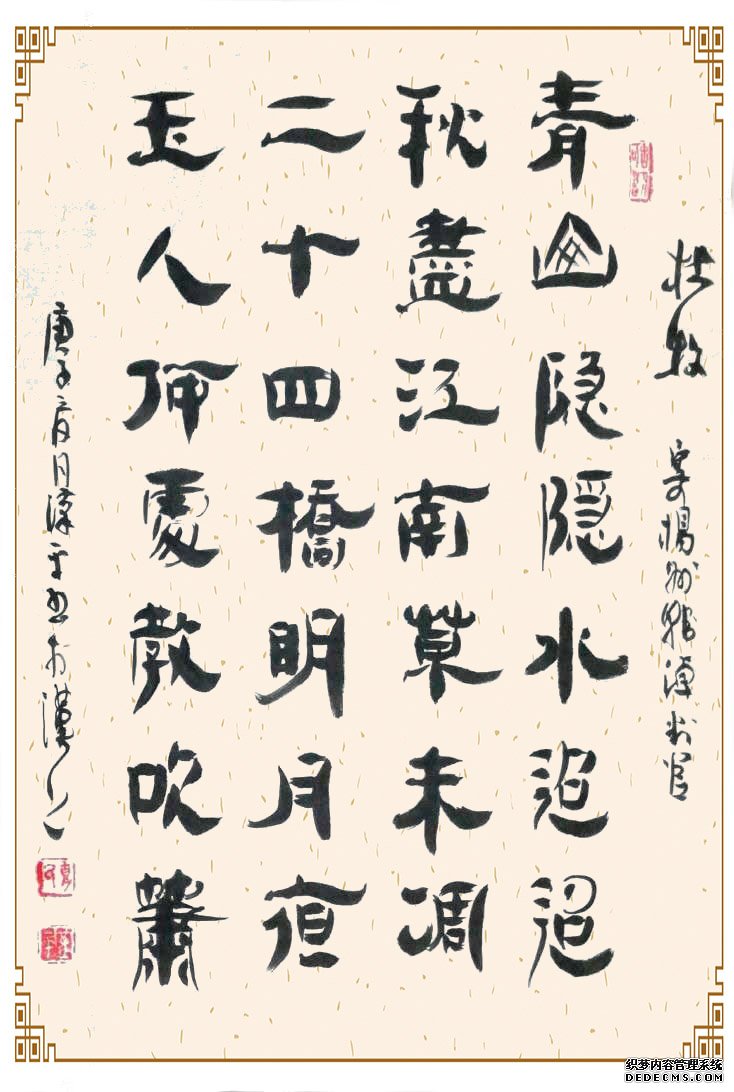 杜牧 寄揚州韓綽判官
青山隐隐水迢迢
秋盡江南草未凋
二十四橋明月夜
玉人何處教吹簫
庚子月平书於漢上
织梦内容管理系统
DEDECMS.COM